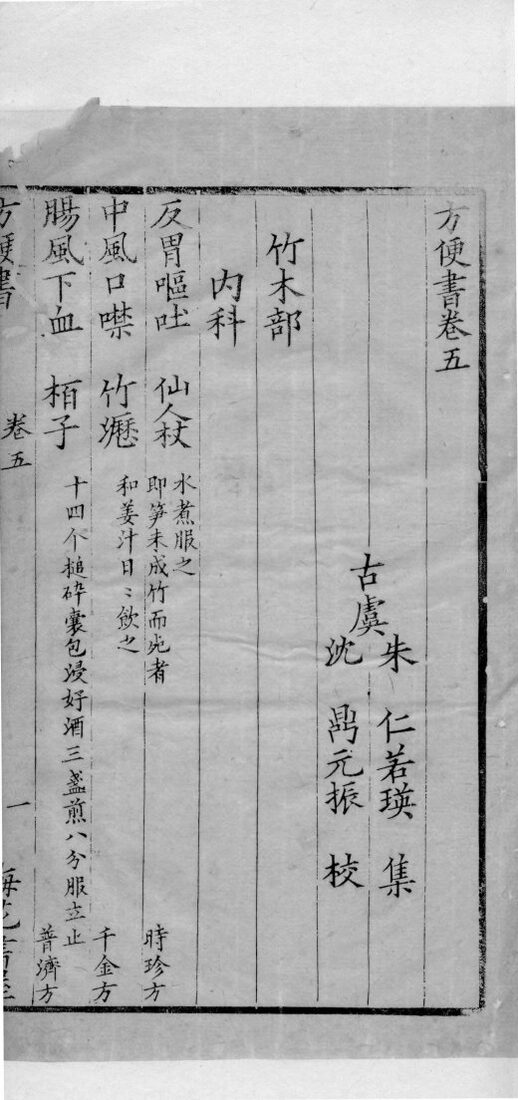 方便書卷五
古虞
朱　仁若瑛　集
沈　鼎元振　校
竹木部
內科
反胃嘔吐　仙人杖　水煮服之
即筍未成竹而死者　時珍方
中風口噤　竹瀝　和姜汁日〻飲之　千金方
腸風下血　栢子　十四个搥碎囊包浸好酒三盞煎八分服立止　普濟方
方便書　卷五　一